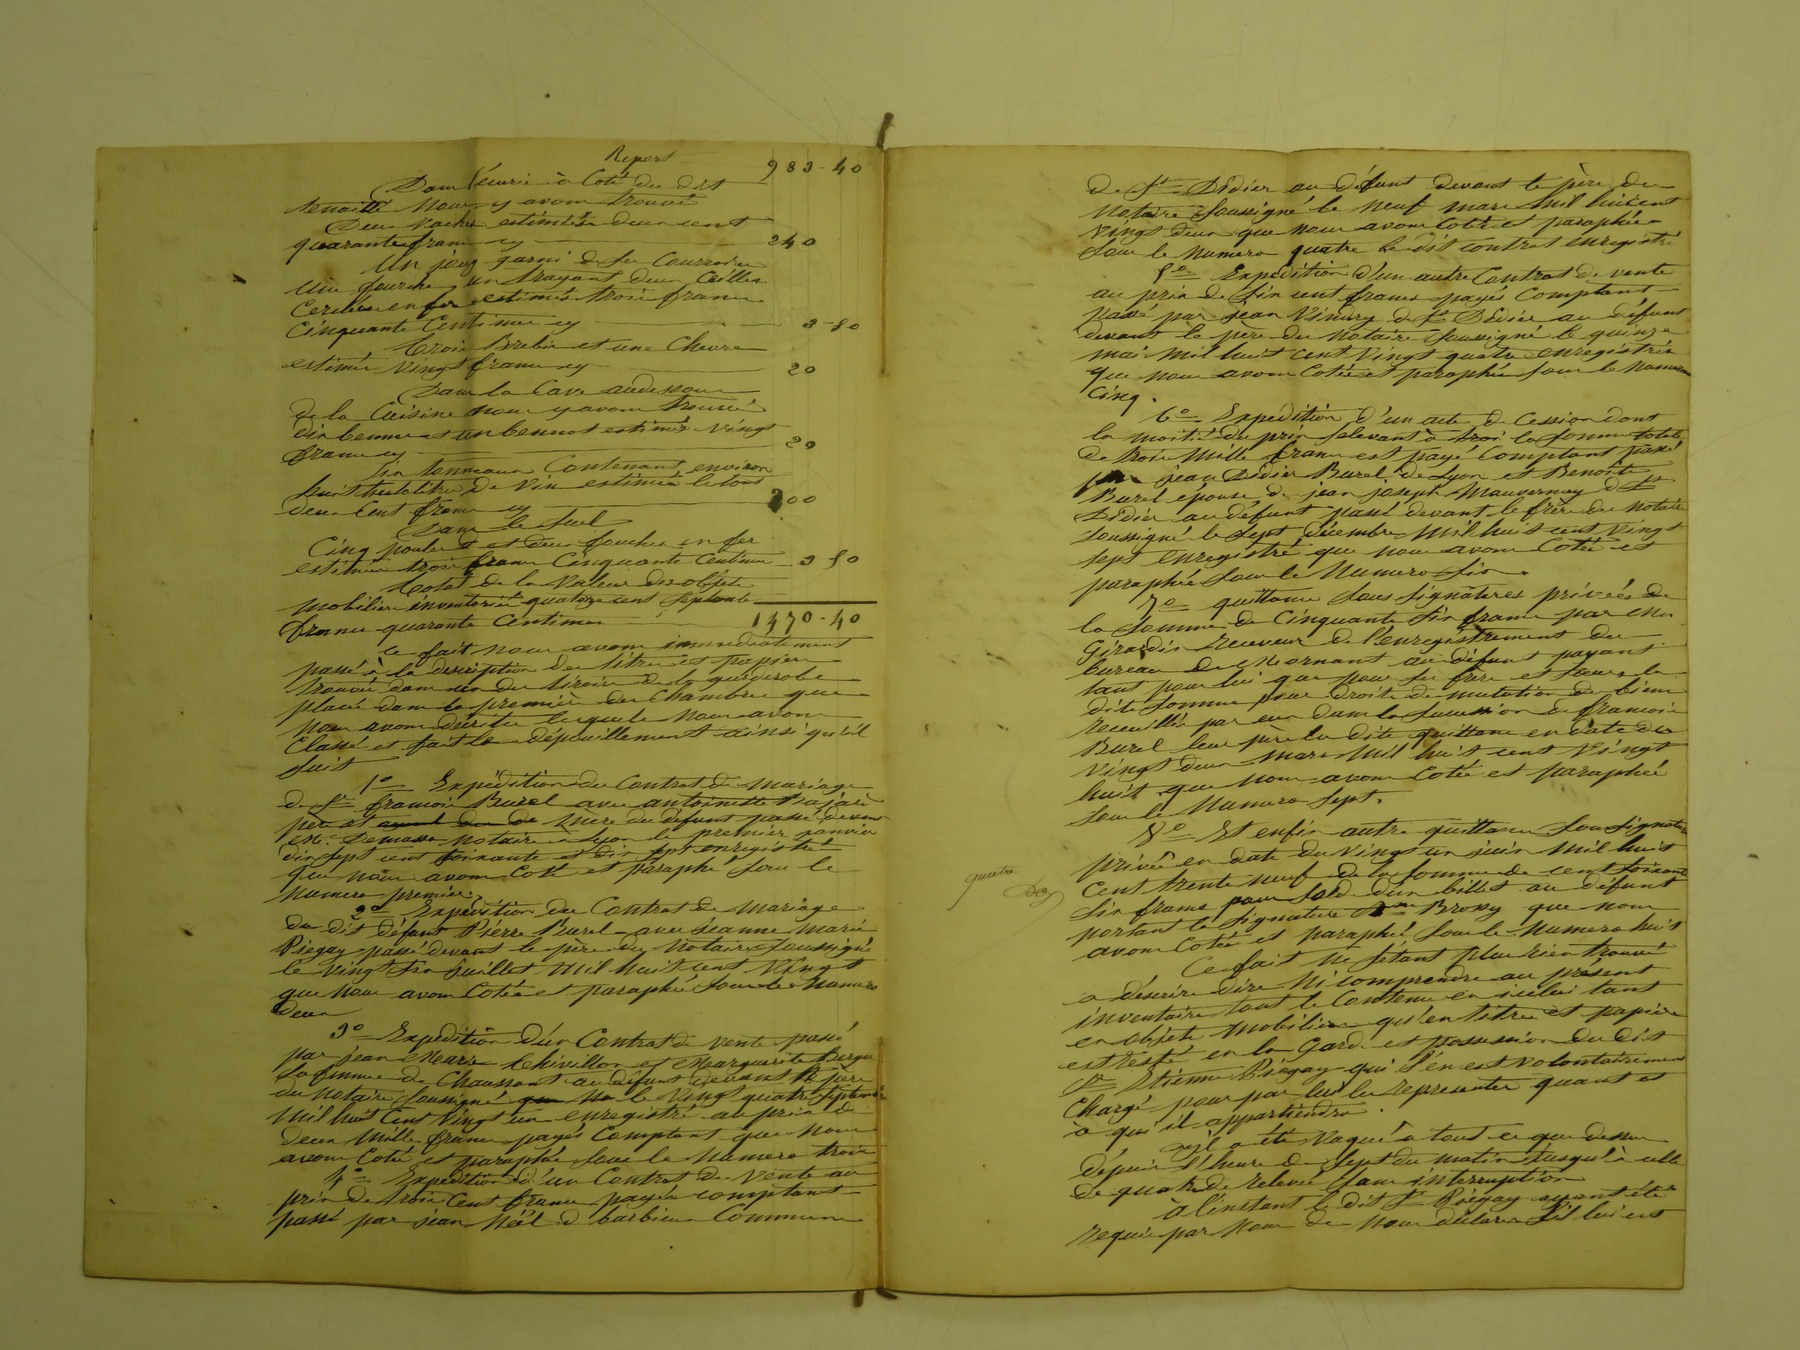 Report 983-40
Dans l'écurie à Coté du dit
tenailler Nous y avons trouvé
Deux vaches estimées deux cent
quarante francs cy 240
Un joug garni de ses Courroies
Une fourche, un trayant deux Ceilles
Cerclées en fer estimés trois francs
Cinquante Centimes cy 3-50
trois Brebis et une Chevre
estimés vingt francs cy 20
Dans la Cave au dessous
de la Cuisine nous y avons trouvé
dix bennes et un bennot estimés vingt
francs cy 20
Six tonneaux Contenant environ
huit hectolitres de vin estimés le tout
deux Cent francs cy 200
Dans le Suel
Cinq poules et deux fourches en fer
estimés trois francs Cinquante Centimes 3 50
total de la valeur des objets
mobiliers inventoriés quatorze cent septante
francs quarante Centimes 1470-40
ce fait nous avons immédiatement
passé à la description des titres et papiers
trouvés dans un des tiroirs de la garderobe
placée dans la première des Chambres que
nous avons décrites lesquels Nous avons
Classé et fait le dépouillement ainsi qu'il
suit
1° Expédition du Contrat de mariage
de Sr françois Burel avec antoinette
père et mère du défunt passé devant
Me Demasse Notaire à Lyon le premier janvier
dix sept cent soixante et dix sept enregistré
que nous avons Coté et paraphé sous le
Numero premier.
2° Expédition du Contrat de mariage
du dit défunt Pierre Burel avec Jeanne Marie
Piégay passé devant le père du Notaire Soussigné
le vingt six Juillet mil huit cent vingt
que Nous avons Cotée et paraphée sous le Numero
deux
3° Expédition d'un Contrat de vente passé
par jean Marie thivillon et Marguerite Berger
sa femme de Chaussant au défunt devant le père
du Notaire Soussigné le vingt quatre Septembre
Mil huit Cent vingt un enregistré au prix de
deux Mille francs payés Comptant que Nous
avons Cotée et paraphée sous le Numero trois
4° Expédition d'un Contrat de vente au
prix de trois Cent francs payés comptant
passé par jean Néël d barbieux Commune
de St Didier au défunt devant le père du
Notaire Soussigné le neuf mars mil huit cent
vingt deux que nous avons Cotée et paraphée
sous le Numero quatre le dit contrat enregistré
5° Expédition d'un autre Contrat de vente
au prix de Six cent francs payés Comptant
passé par Jean Vindry de St Didier au défunt
devant le père du Notaire Soussigné le quinze
mai Mil huit cent vingt quatre enregistrée
que nous avons Cotée et paraphée sous le Numero
Cinq.
6° Expédition d'un acte de Cession dont
la moitié du prix s'elevant à trois la somme totale
de trois Mille francs est payé Comptant passé
par Jean Didier Burel de Lyon et Benoîte
Burel epouse de jean joseph Mauvernay de St
Didier au défunt passé devant le père du Notaire
Soussigné le sept décembre Mil huit cent vingt
sept enregistré que nous avons Cotée et
paraphée sous le Numero Six.
7° quittance sous signatures privées de
la somme de Cinquante Six francs par Mr
Girardis receveur de l'enregistrement du
bureau de Mornant au défunt payant
tant pour lui que pour ses frère et sœurs la
dite somme pour droits de mutation des biens
recueillis par eux dans la succession de françois
Burel leur père la dite quittance en date du
vingt deux mars Mil huit cent vingt
huit que nous avons Cotée et paraphée
sous le Numero Sept.
8° Et enfin autre quittance sous signature
privée en date du vingt un juin Mil huit
quatre
Cent trente neuf de la somme de cent soixante
Six francs pour solde d'un billet au défunt
portant la signature Brossy que nous
avons Cotée et paraphée sous le Numero huit
Ce fait Ne s'étant plus rien trouvé
a décrire dire Ni comprendre au présent
inventaire tout le Contenu en icelui tant
en objets mobiliers qu'en titres et papiers
est resté en la Garde et possession du dit
Sr Etienne Piégay qui s'en est volontairement
Chargé pour par lui les representer quand et
à qui il appartiendra.
Il a été Vaqué à tout ce que dessus
depuis l'heure de sept du matin jusqu'à celle
de quatre de relevée sans interruption
à l'instant le dit Sr Piégay ayant été
requis par Nous de Nous déclarer s'il lui est